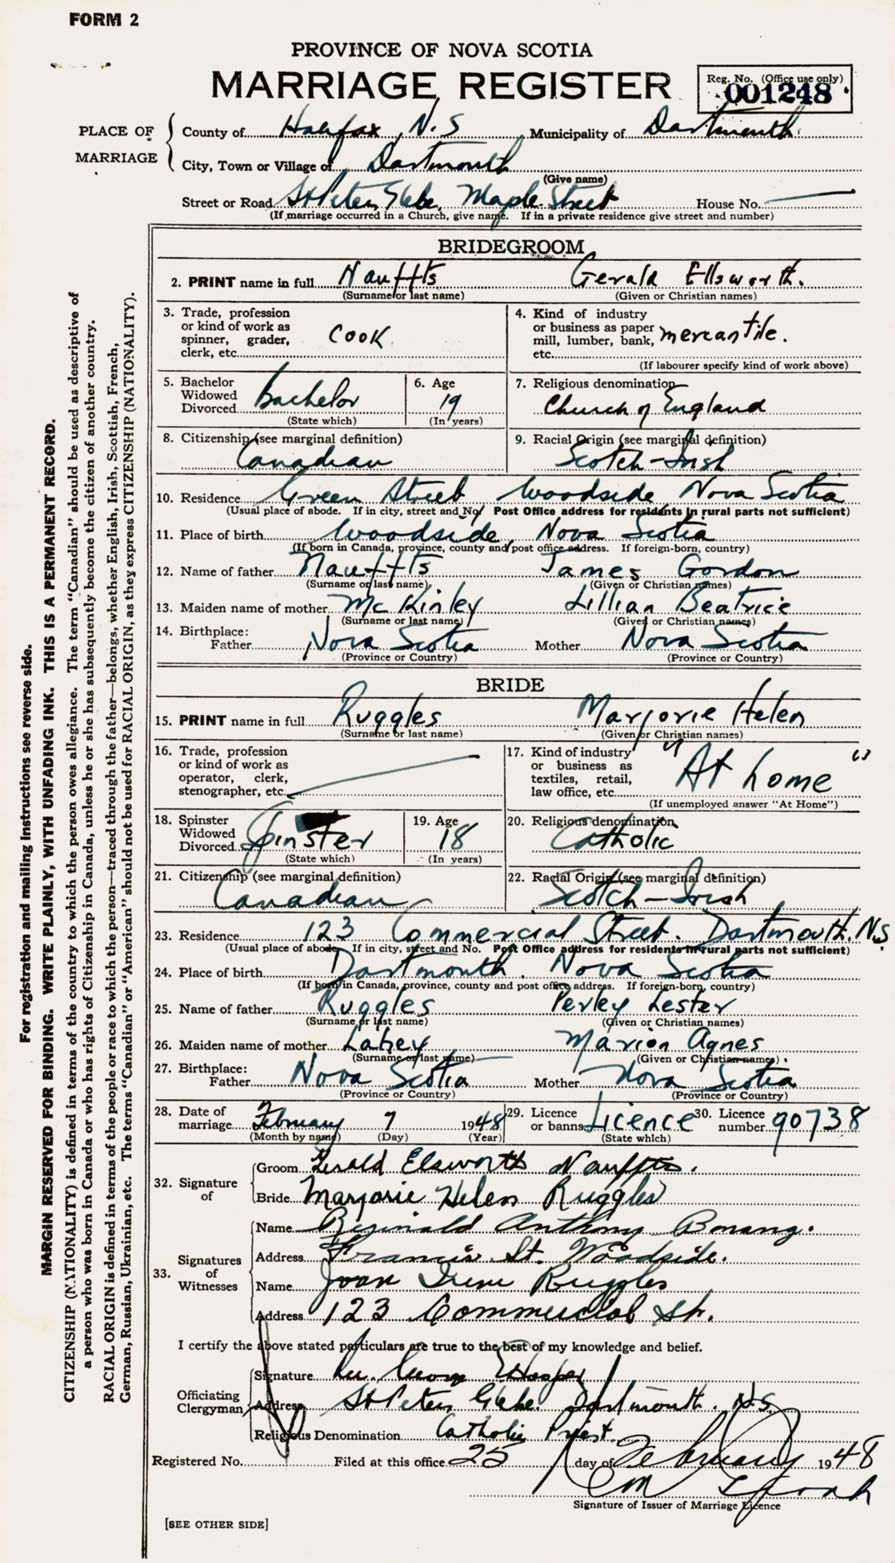 FORM 2
PROVINCE OF NOVA SCOTIA
MARRIAGE REGISTER
Reg. No. (Office use only)
001248
PLACE OF MARRIAGE
County of Halifax, N.S Municipality of Dartmouth
City, Town or Village of Dartmouth
(Give name)
Street or Road St Peters Glebe, Maple Street House No.
(If marriage occurred in a Church, give name. If in a private residence give street and number)
BRIDEGROOM
2. PRINT name in full Nauffts Gerald Ellsworth.
(Surname or last name) (Given or Christian names)
3. Trade, profession or kind of work as spinner, grader, clerk, etc. COOK
4. Kind of industry or business as paper mill, lumber, bank, etc. mercantile.
(If labourer specify kind of work above)
5. Bachelor Widowed Divorced Bachelor
(State which)
6. Age 19
(In years)
7. Religious denomination Church of England
8. Citizenship (see marginal definition) Canadian
9. Racial Origin (see marginal definition) Scotch-Irish
10. Residence Green Street Woodside Nova Scotia
(Usual place of abode. If in city, street and No. Post Office address for residents in rural parts not sufficient)
11. Place of birth Woodside, Nova Scotia
(If born in Canada, province, county and post office address. If foreign-born, country)
12. Name of father Nauffts James Gordon
(Surname or last name) (Given or Christian names)
13. Maiden name of mother McKinley Lillian Beatrice
(Surname or last name) (Given or Christian names)
14. Birthplace: Father Nova Scotia Mother Nova Scotia
(Province or Country) (Province or Country)
BRIDE
15. PRINT name in full Ruggles Marjorie Helen
(Surname or last name) (Given or Christian names)
16. Trade, profession or kind of work as operator, clerk, stenographer, etc.
17. Kind of industry or business as textiles, retail, law office, etc. "At home"
(If unemployed answer "At Home")
18. Spinster Widowed Divorced Spinster
(State which)
19. Age 18
(In years)
20. Religious denomination Catholic
21. Citizenship (see marginal definition) Canadian
22. Racial Origin (see marginal definition) Scotch-Irish
23. Residence 123 Commercial Street. Dartmouth, N.S.
(Usual place of abode. If in city, street and No. Post Office address for residents in rural parts not sufficient)
24. Place of birth Dartmouth. Nova Scotia
(If born in Canada, province, county and post office address. If foreign-born, country)
25. Name of father Ruggles Perley Lester
(Surname or last name) (Given or Christian names)
26. Maiden name of mother Lahey Marion Agnes
(Surname or last name) (Given or Christian names)
27. Birthplace: Father Nova Scotia Mother Nova Scotia
(Province or Country) (Province or Country)
28. Date of marriage February 7 1948
(Month by name) (Day) (Year)
29. Licence or banns Licence
(State which)
30. Licence number 90738
32. Signature of
Groom Gerald Elsworth Nauffts.
Bride Marjorie Helen Ruggles
33. Signatures of Witnesses
Name Reginald Anthony Bonang.
Address Francis St. Woodside.
Name Joan Irene Ruggles
Address 123 Commercial St.
I certify the above stated particulars are true to the best of my knowledge and belief.
Officiating Clergyman
Signature
Address St Peters Glebe. Dartmouth. N.S.
Religious Denomination Catholic Priest.
Registered No. Filed at this office 25 day of February 1948
Signature of Issuer of Marriage Licence
[SEE OTHER SIDE]
For registration and mailing instructions see reverse side.
MARGIN RESERVED FOR BINDING. WRITE PLAINLY, WITH UNFADING INK. THIS IS A PERMANENT RECORD.
CITIZENSHIP (NATIONALITY) is defined in terms of the country to which the person owes allegiance. The term "Canadian" should be used as descriptive of
a person who was born in Canada or who has rights of Citizenship in Canada, unless he or she has subsequently become the citizen of another country.
RACIAL ORIGIN is defined in terms of the people or race to which the person—traced through the father—belongs, whether English, Irish, Scottish, French,
German, Russian, Ukrainian, etc. The terms "Canadian" or "American" should not be used for RACIAL ORIGIN, as they express CITIZENSHIP (NATIONALITY).